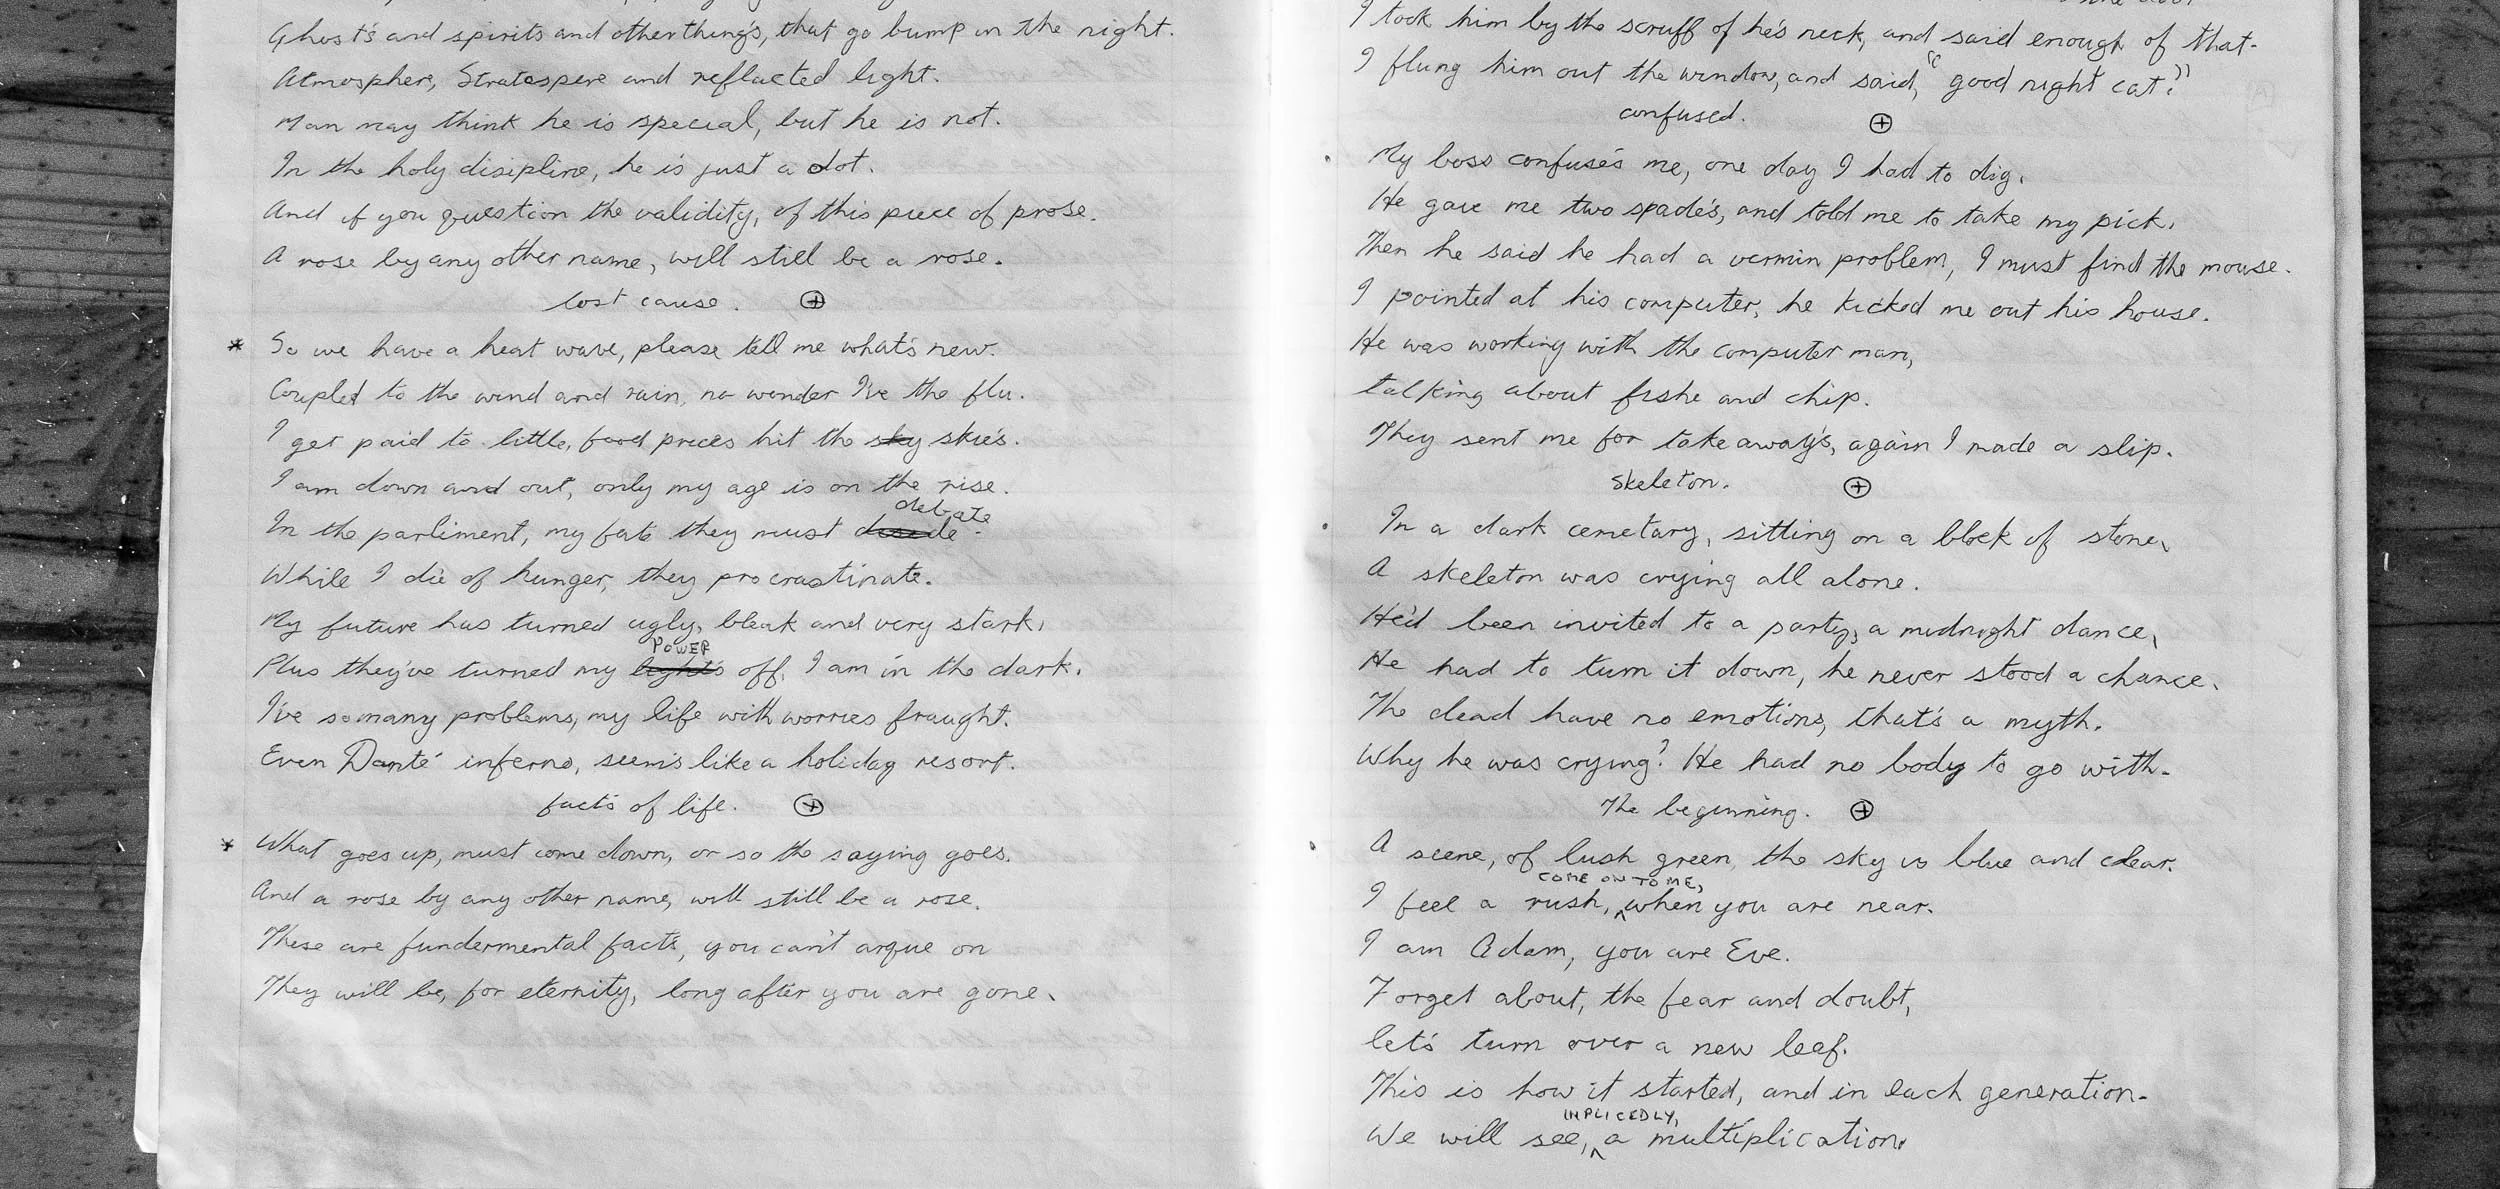 Ghost's and spirits and other thing's, that go bump in the night.
Atmospher, Stratospere and reflacted light.
Man may think he is special, but he is not.
In the holy disipline, he is just a dot.
And if you question the validity, of this piece of prose.
A rose by any other name, will still be a rose.
lost cause. ⊕
* So we have a heat wave, please tell me what's new.
Coupled to the wind and rain, no wonder I've the flu.
I get paid to little, food prices hit the sky skie's.
I am down and out, only my age is on the rise.
debate
In the parliment, my fate they must deside.
While I die of hunger, they procrastinate.
My future has turned ugly, bleak and very stark.
POWER
Plus they've turned my light's off, I am in the dark.
I've so many problems, my life with worries fraught.
Even Danté inferno, seem's like a holiday resort.
facts of life. ⊕
* What goes up, must come down, or so the saying goes.
And a rose by any other name, will still be a rose.
These are fundermental facts, you can't argue on
They will be, for eternity, long after you are gone.
I took him by the scruff of he's neck, and said enough of that.
I flung him out the window, and said, "good night cat."
confused. ⊕
My boss confuse's me, one day I had to dig.
He gave me two spade's, and told me to take my pick.
Then he said he had a vermin problem, I must find the mouse.
I pointed at his computer, he kicked me out his house.
He was working with the computer man,
talking about fishe and chip.
They sent me for take away's, again I made a slip.
Skeleton. ⊕
In a dark cemetary, sitting on a block of stone,
A skeleton was crying all alone.
He'd been invited to a party, a midnight dance,
He had to turn it down, he never stood a chance.
The dead have no emotions, that's a myth.
Why he was crying? He had no body to go with.
The beginning. ⊕
A scene, of lush green, the sky is blue and clear.
COME ON TO ME,
I feel a rush, ^ when you are near.
I am Adam, you are Eve.
Forget about, the fear and doubt,
let's turn over a new leef.
This is how it started, and in each generation.
IMPLICEDLY,
We will see, ^ a multiplication.